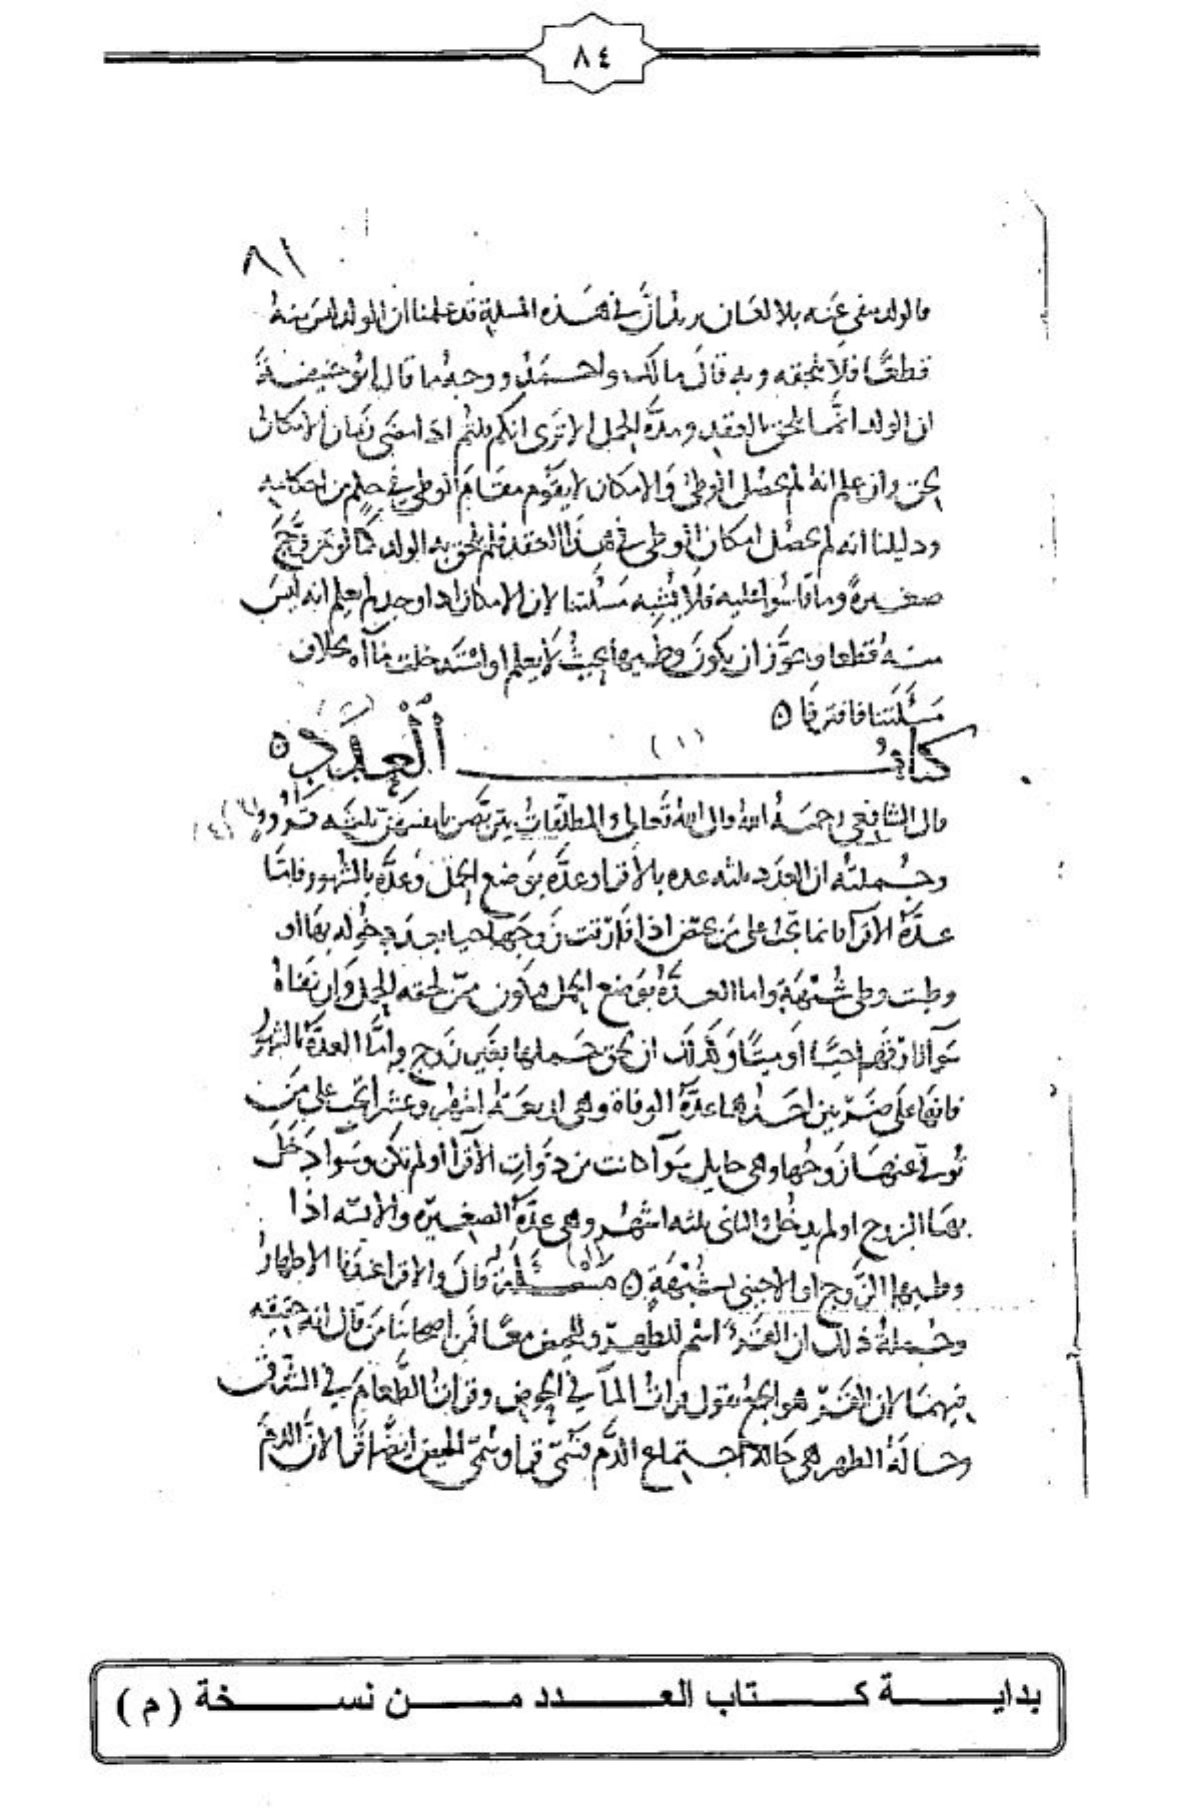 ٨٤
٨١
فالولد منفى عنه بلا لعان في هذه المسلة قد علمنا ان الولد ليس منه
قطعًا فلا يلحقه وبه قال مالك واحمد ووجه ما قال ابو حنيفة
ان الولد انما يلحق بالعقد ومدة الحمل الا ترى انكم قلتم اذا مضى زمان الامكان
لحق وان علم انه لم يحصل الوطئ والامكان لا يقوم مقام الوطئ في حكم من احكامه
ودليلنا انه لم يحصل امكان الوطى في هذا العقد فلم يلحق به الولد كما لو تزوج
صغيرة وما قاسوا عليه فلا يشبه مسئلتنا لان الامكان اذا وجد لم يعلم انه ليس
منه قطعا ويجوز ان يكون وطيها بحيث لا يعلم او استدخلت ماآه بخلاف
مسئلتنا فافترقا ه
كتاب (١) العدد ه
قال الشافعي رحمه الله قال الله تعالى والمطلقات يتربصن بانفسهن ثلثه قروء
وجملته ان العدد ثلثه عده بالاقرا وعدة بوضع الحمل وعدة بالشهور فاما
عدة الاقرآ فانما تجب على من تحيض اذا فارقت زوجها حيا بعد دخوله بها او
وطيت وطى شبهة واما العدة بوضع الحمل فتكون ممن لحقه الحمل وان نفاه
سوآ فارقهم احيًا او ميتًا وكذلك ان لحق حملها بغير زوج واما العدة بالشهور
فانها على ضربين احدهما عدة الوفاة وهي اربعة اشهر وعشر تجب على من
توفي عنها زوجها وهي حايل سوآ كانت من ذوات الاقرآ او لم تكن وسوا دخل
بها الزوج او لم يدخل والثاني ثلثه اشهر وهي عدة الصغيره والايسه اذا
وطيها الزوج او الاجنبي بشبهة ه مسئلة قال والاقرا عندنا الاطهار
وجملة ذلك ان القرء اسم للطهر وللحيض معًا فمن اصحابنا من قال انه حقيقه
فيهما لان القرء هو الجمع يقول قرات المآ في الحوض وقرات الطعام في الشدق
وحالة الطهر هي حالة اجتماع الدم فسمى قرا وسمى الحيض ايضا قرا لان الدم
بدايـــة كـــتاب العـــدد مـــن نســـخة (م)